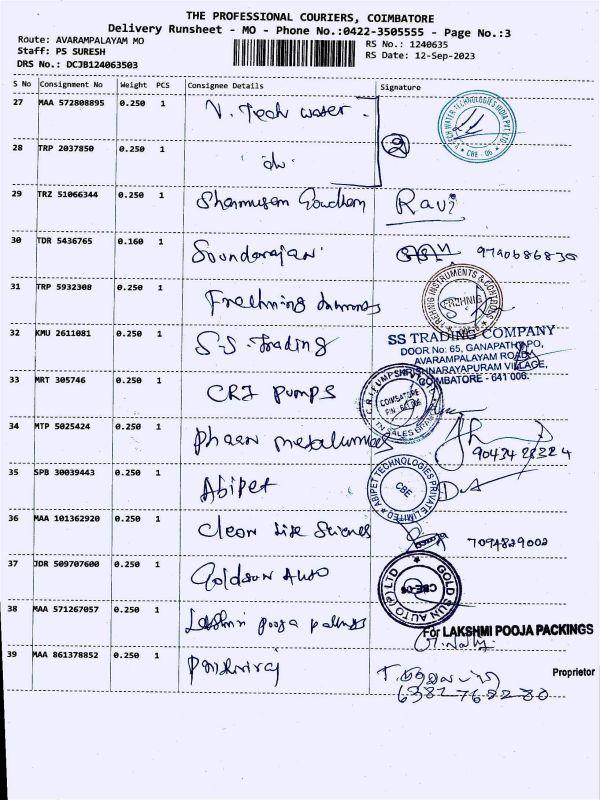 THE PROFESSIONAL COURIERS, COIMBATORE
Delivery Runsheet - MO - Phone No.:0422-3505555 - Page No.:3
Route: AVARAMPALAYAM MO
RS No.: 1240635
Staff: PS SURESH
RS Date: 12-Sep-2023
DRS No.: DCJB124063503
S No Consignment No Weight PCS Consignee Details Signature
27 MAA 572808895 0.250 1 V. Tech water
28 TRP 2037850 0.250 1 do
29 TRZ 51066344 0.250 1 Ravi
30 TDR 5436765 0.160 1 Soundarajan
31 TRP 5932308 0.250 1
32 KMU 2611081 0.250 1 S-S. Trading
SS TRADING COMPANY
DOOR No: 65, GANAPATHY PO,
AVARAMPALAYAM ROAD
KRISHNARAYAPURAM VILLAGE,
COIMBATORE - 641 006.
33 MRT 305746 0.250 1 CRI pumps
COIMBATORE
34 MTP 5025424 0.250 1
35 SPB 30039443 0.250 1 Abipet
ABIPET TECHNOLOGIES PRIVATE LIMITED
CBE
36 MAA 101362920 0.250 1 Clean life Sciences 7094829002
37 JDR 509707600 0.250 1 Goldsun Auto
GOLD SUN AUTO (P) LTD
CBE-06
38 MAA 571267057 0.250 1 Lakshmi pooja
For LAKSHMI POOJA PACKINGS
39 MAA 861378852 0.250 1
Proprietor